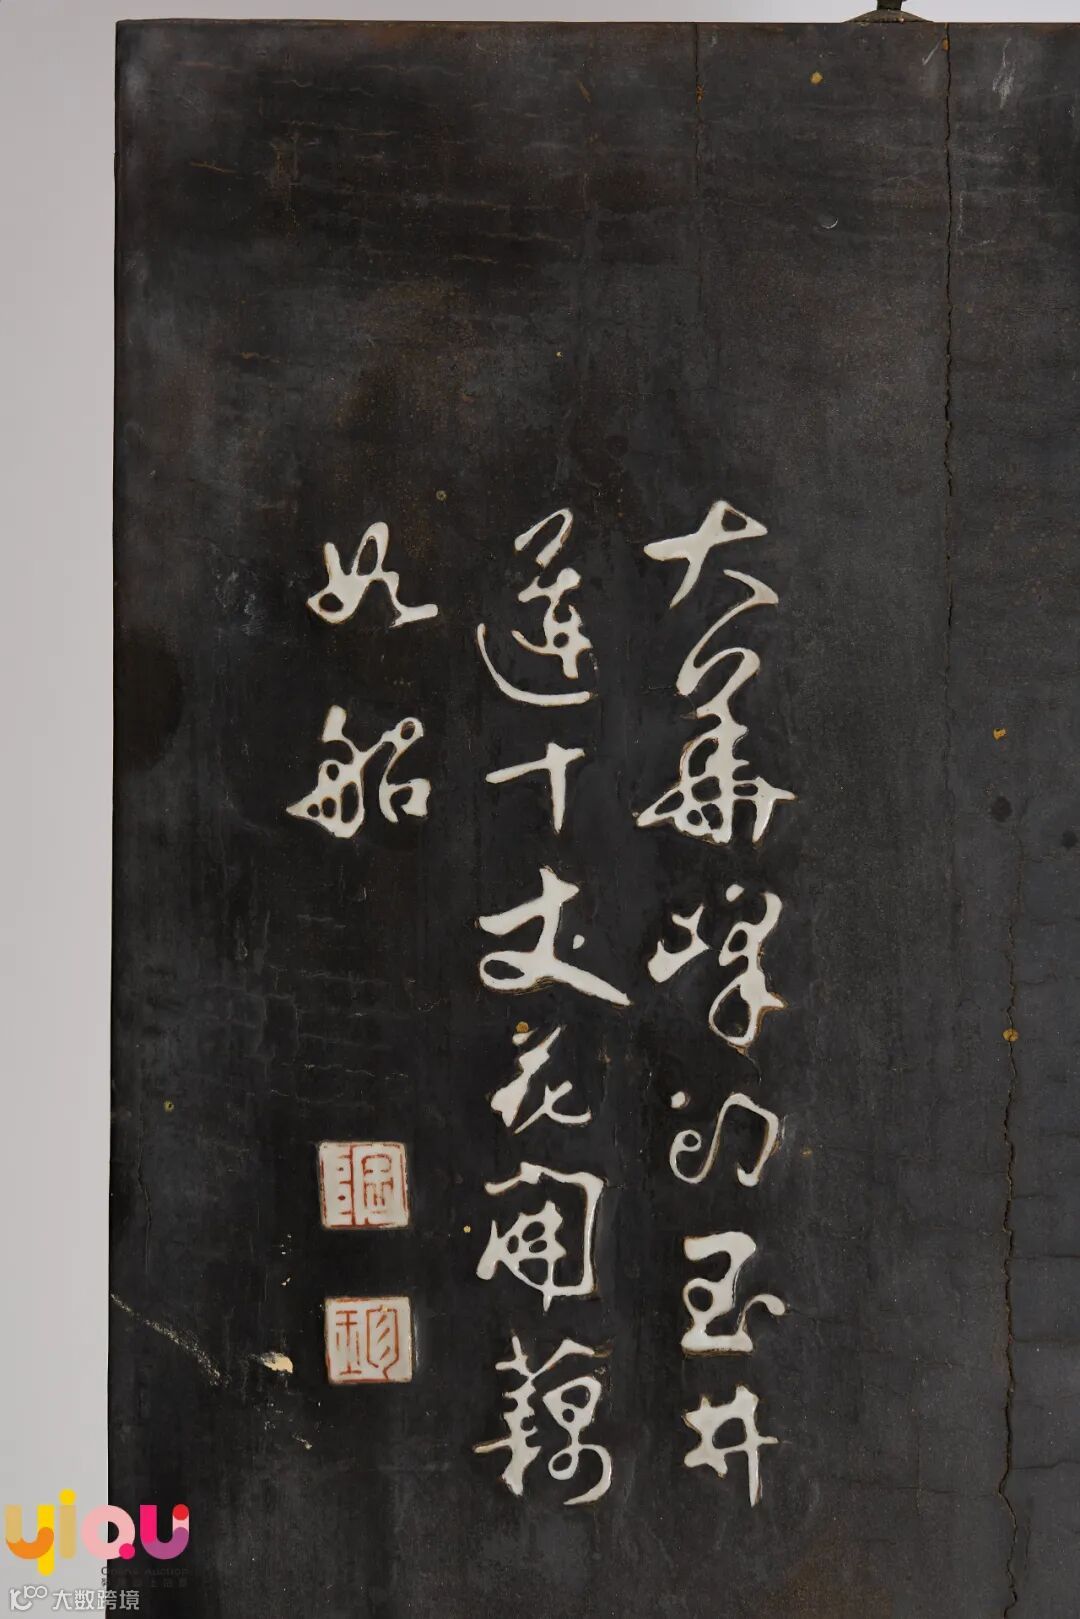 大華峰頭玉井
蓮十丈花開藕
如船
珍
yiqu
Online Auction
大数跨境